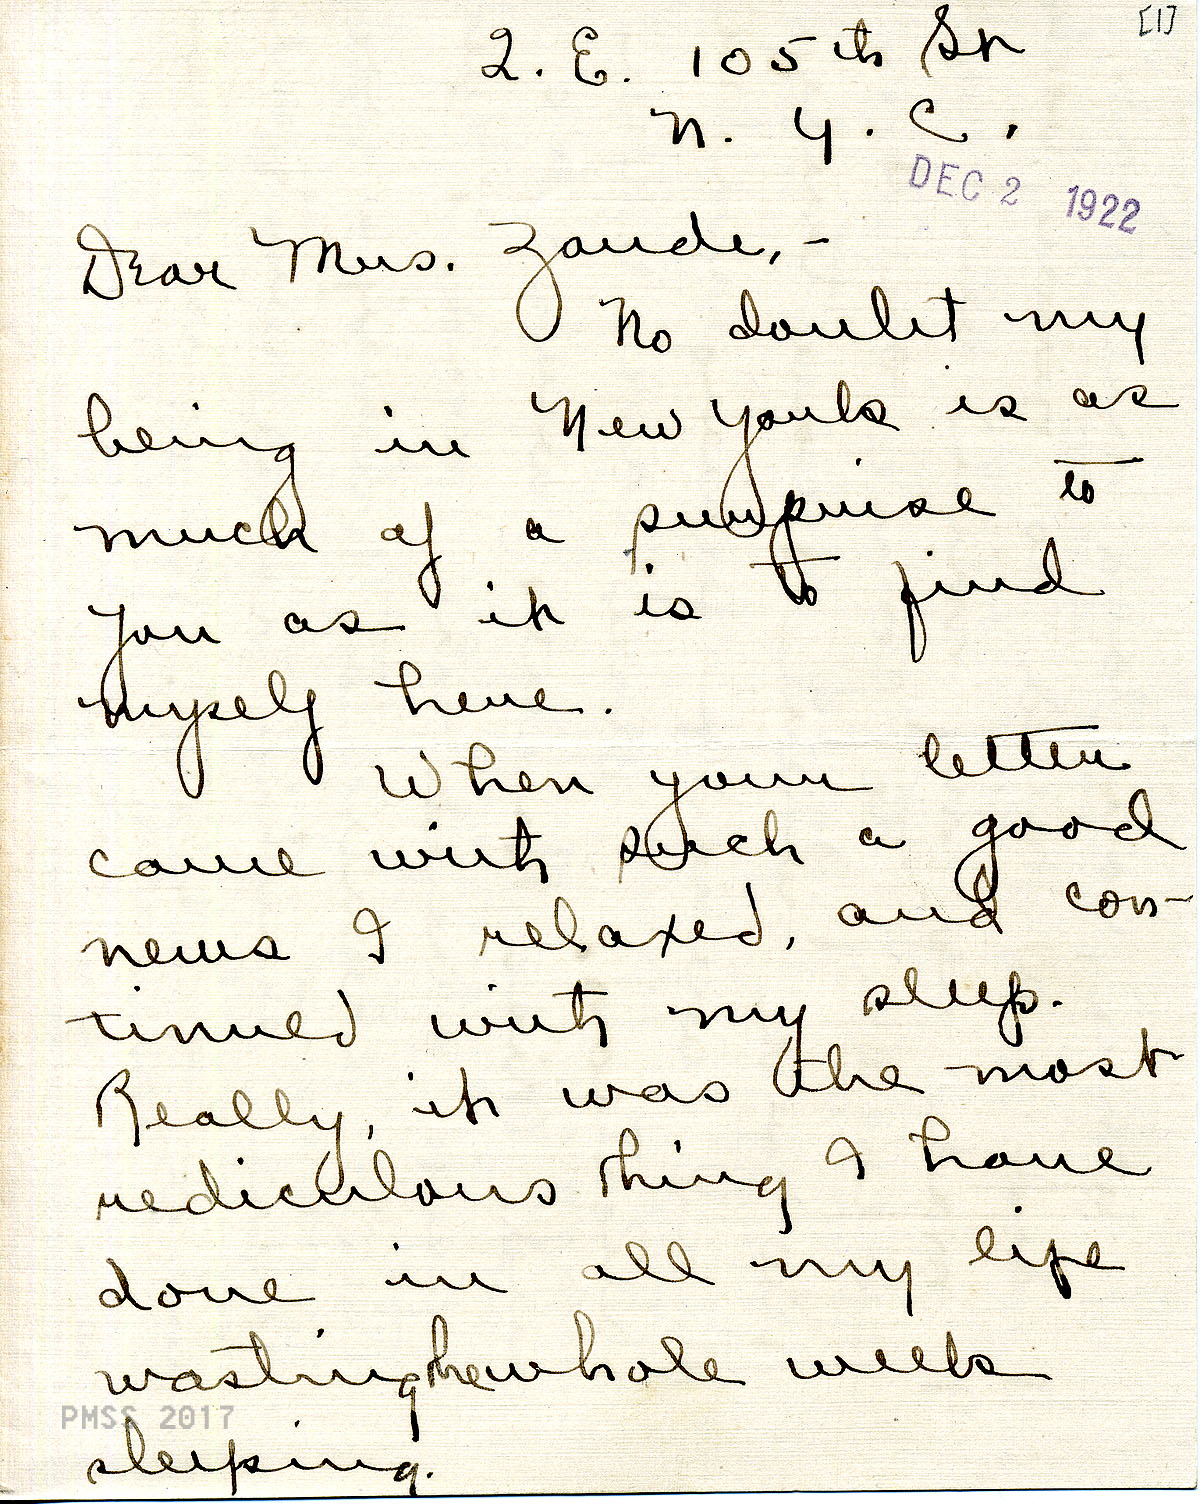 [1]
2. E. 105th St
N. Y. C.
DEC 2 1922
Dear Mrs. Zande,-
No doubt my
being in New York is as
much of a surprise to
you as it is to find
myself here.
When your letter
came with such a good
news I relaxed, and con-
tinued with my sleep.
Really, it was the most
rediculous thing I have
done in all my life
wasting the whole week
sleeping.
PMSS 2017